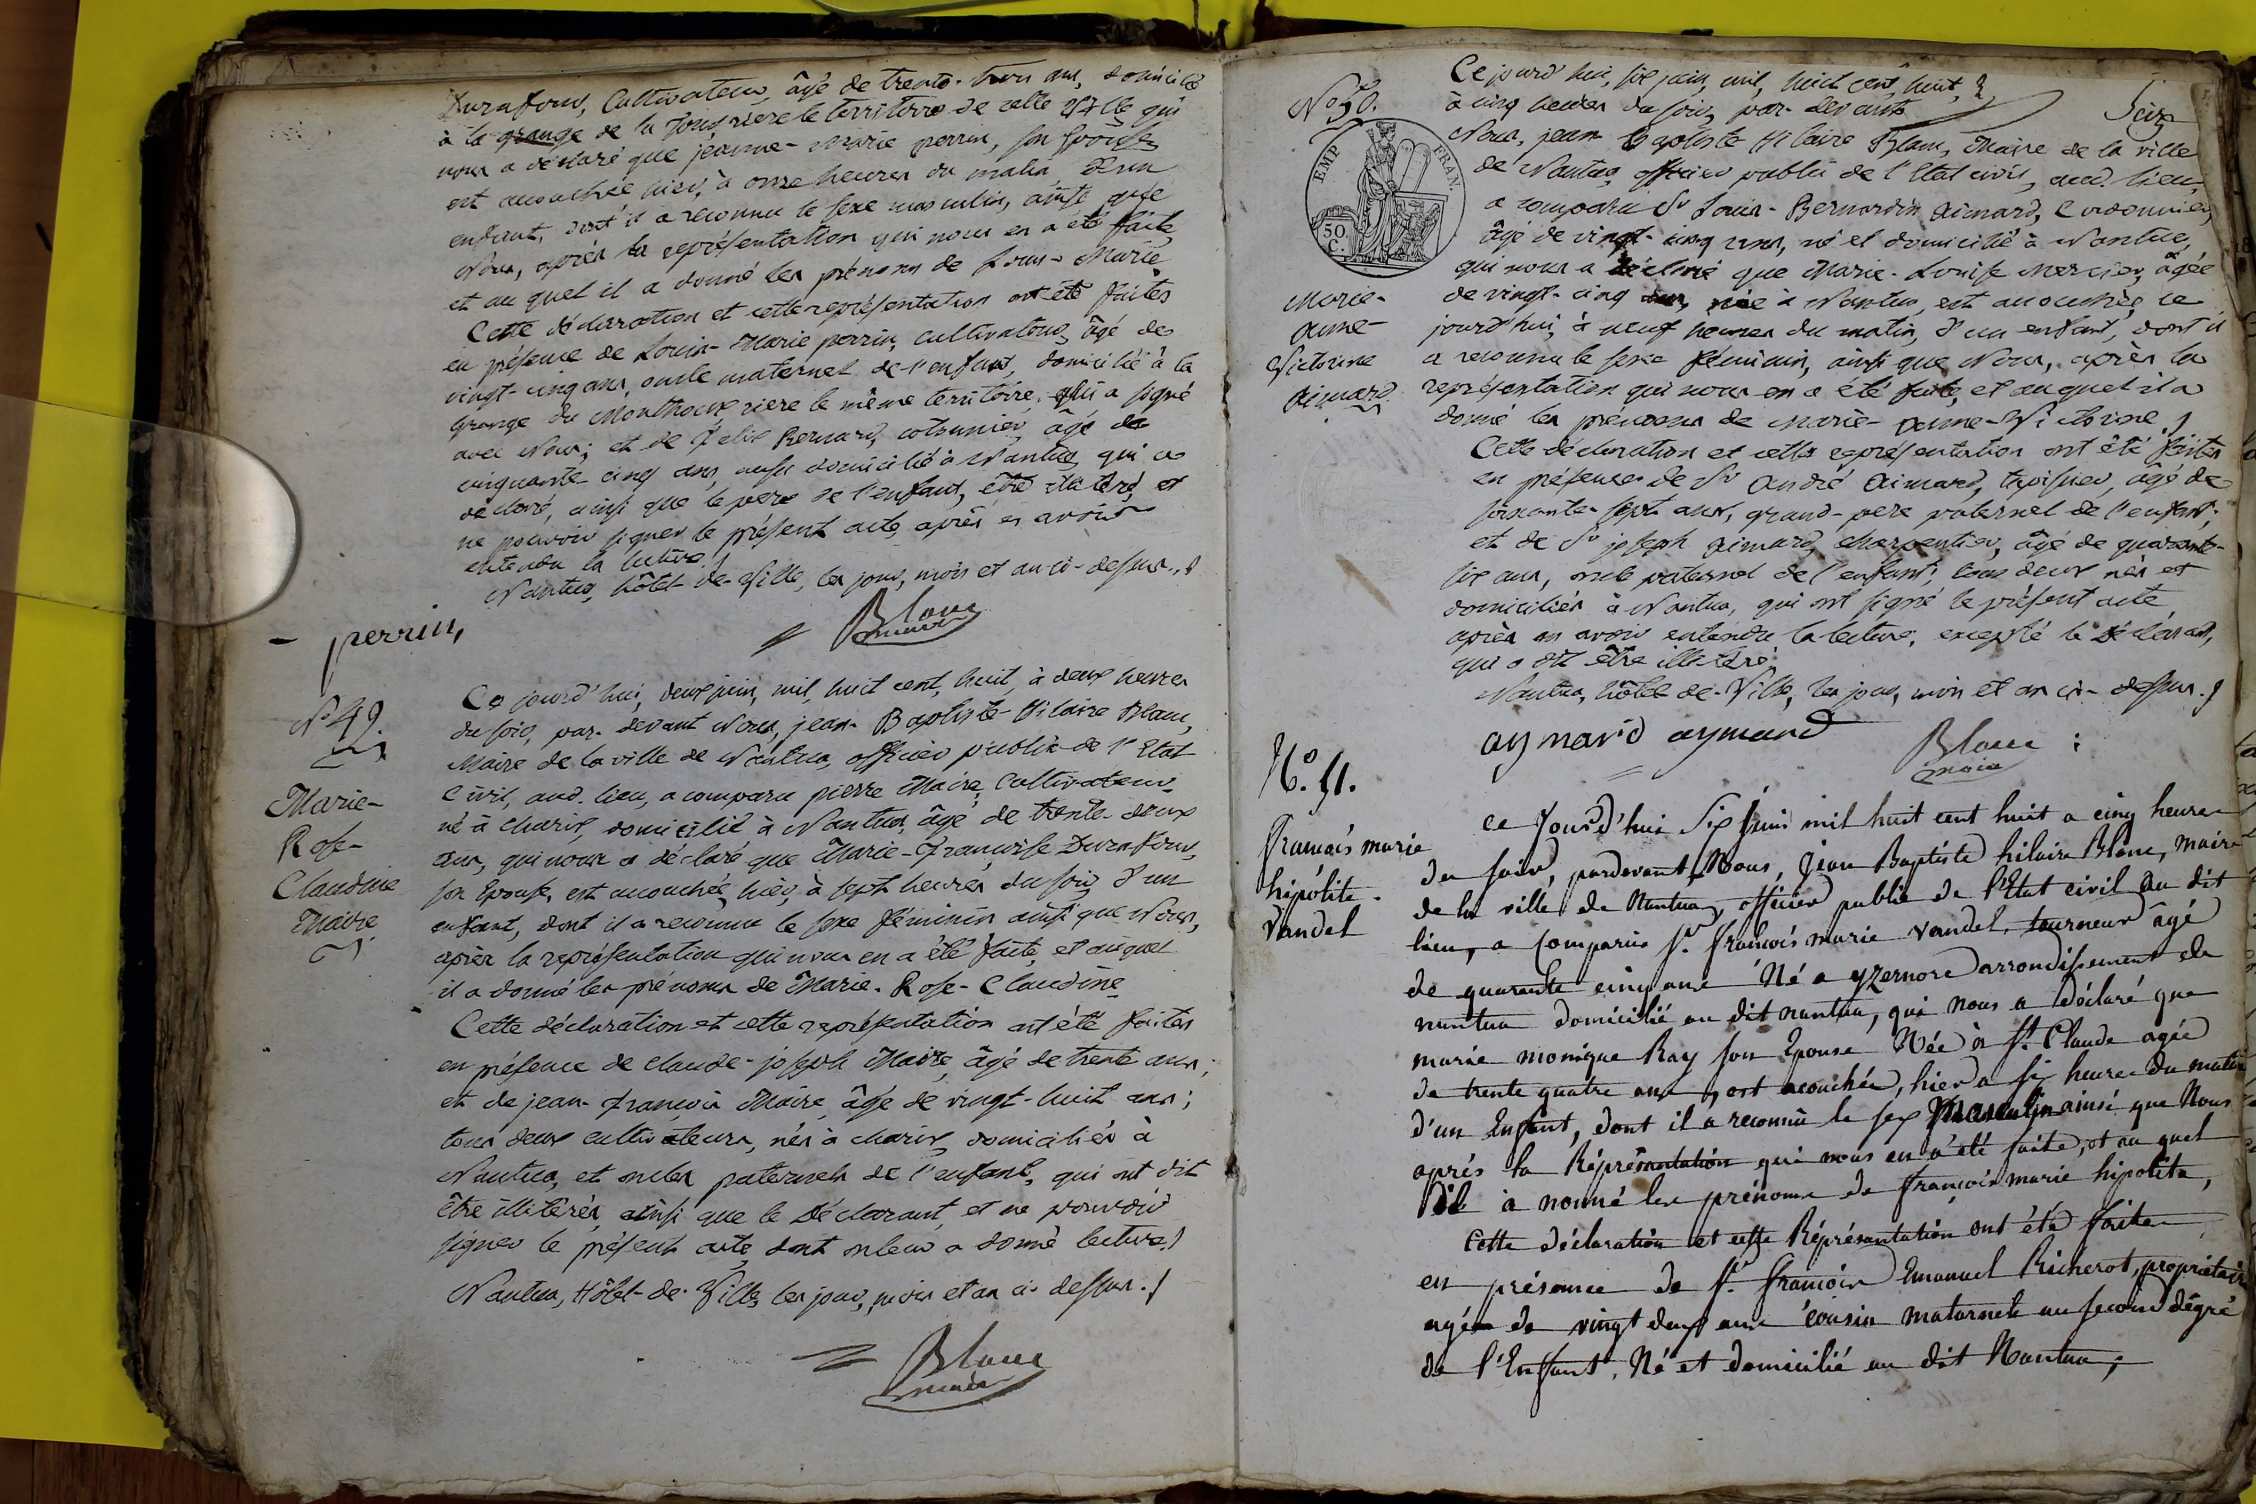 Durafour, Cultivateur, âgé de trente-trois ans, domicilié
à la grange de la rière le territoire de cette Ville, qui
nous a déclaré que jeanne-Marie perrin, son Epouse
est accouchée hier, à onze heures du matin, d'un
enfant, dont il a reconnu le sexe masculin, ainsi que
Nous, après la représentation qui nous en a été faite,
et au quel il a donné les prénoms de Louis-Marie
Cette déclaration et cette représentation ont été faites
en présence de Louis-Marie perrin, cultivateur, âgé de
vingt-cinq ans, oncle maternel de l'enfant, domicilié à la
Grange du rière le même territoire, qui a signé
avec Nous; et de Felix Bernard, cotonnier, âgé de
cinquante-cinq ans, aussi domicilié à Nantua, qui a
déclaré, ainsi que le père de l'enfant, être illitéré, et
ne pouvoir signer le présent acte, après en avoir
entendu la lecture./
Nantua, hôtel-de-Ville, les jour, mois et an-ci-dessus./
perrin,
Blanc
maire
N° 49.
Marie-
Rose-
Claudine
Maire
Ce jourd'hui, deux juin, mil, huit cent, huit, à deux heures
du soir, par-devant Nous, jean-Baptiste-Hilaire Blanc,
Maire de la ville de Nantua, officier public de l'Etat
Civil, aud. lieu, a comparu pierre Maire, Cultivateur,
né à charix, domicilié à Nantua, âgé de trente-deux
ans, qui nous a déclaré que Marie-Françoise Durafour,
son Epouse, est accouchée, hier, à sept heures du soir, d'un
enfant, dont il a reconnu le sexe féminin ainsi que Nous,
après la représentation qui nous en a été faite, et auquel
il a donné les prénoms de Marie-Rose-Claudine
Cette déclaration et cette représentation ont été faites
en présence de claude-joseph Maire, âgé de trente ans;
et de jean-françois Maire, âgé de vingt-huit ans;
tous deux cultivateurs, nés à charix, domiciliés à
Nantua, et oncles paternels de l'enfant, qui ont dit
être illitérés, ainsi que le Déclarant, et ne pouvoir
signer le présent acte, dont on leur a donné lecture./
Nantua, Hôtel-de-Ville, les jour, mois et an ci-dessus./
Blanc
maire
N° 50.
EMP. FRAN.
50
C.
Marie-
Anne-
Victorine
Aimard
Ce jourd'hui, six juin, mil, huit cent, huit,
à cinq heures du soir, par-devant
Nous, jean Baptiste Hilaire Blanc, Maire de la ville
de Nantua, officier public de l'Etat civil, aud. lieu,
a comparu Sr Louis-Bernardin Aimard, Cordonnier,
âgé de vingt-cinq ans, né et domicilié à Nantua,
qui nous a déclaré que Marie-Louise Mercier, âgée
de vingt-cinq ans, née à Nantua, est accouchée, ce
jourd'hui, à neuf heures du matin, d'un enfant, dont il
a reconnu le sexe féminin, ainsi que Nous, après la
représentation qui nous en a été faite, et auquel il a
donné les prénoms de Marie-Anne-Victorine./
Cette déclaration et cette représentation ont été faites
en présence de Sr André Aimard, âgé de
soixante-sept ans, grand-pere paternel de l'enfant;
et de Sr joseph Aimard, charpentier, âgé de quarante-
six ans, oncle paternel de l'enfant; tous deux nés et
domiciliés à Nantua, qui ont signé le présent acte
après en avoir entendu la lecture, excepté le Déclarant,
qui a dit être illitéré;
Nantua, hôtel-de-Ville, les jour, mois et an ci-dessus./
aymard aymard
Blanc
maire
N° 51.
françois marie
hipolite
Vandel
Ce jourd'hui Six Juin mil huit cent huit a cinq heures
du soir, pardevant Nous, Jean Baptiste hilaire Blanc, Maire
de la ville de Nantua, officier public de l'Etat civil au dit
lieu, a comparu Sr. françois marie Vandel, tourneur âgé
de quarante cinq ans Né a yzernore arrondissement de
nantua domicilié au dit nantua, qui nous a déclaré que
marie monique Ray son Epouse Née à St. Claude agée
de trente quatre ans, est acouchée, hier a six heures du matin
d'un Enfant, dont il a reconnu le sex Masculin ainsi que Nous
après la Réprésentation qui nous en a été faite, et au quel
il à nonné les prénoms de françois marie hipolite,
Cette déclaration et cette Réprésentation ont été faites
en présence de Sr. françois Emanuel Richerot, propriétaire
agée de vingt deux ans cousin maternele au second dégré
de l'Enfant, Né et domicilié au dit Nantua;